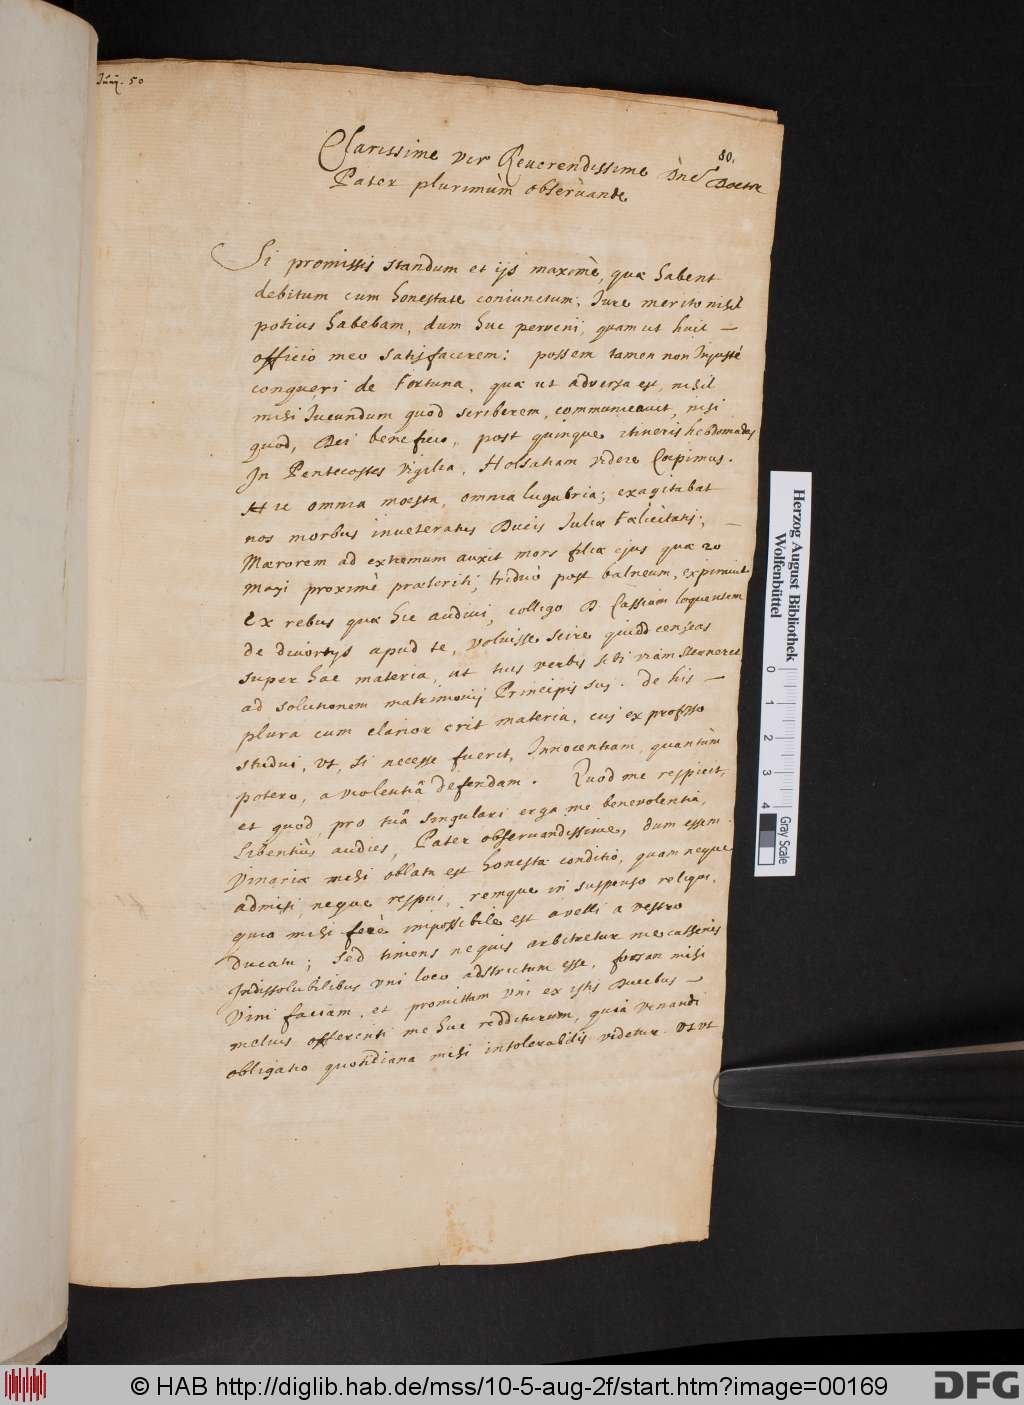 Junij. 50
80.
Clarissime vir Reuerendissime Dne Doctor
Pater plurimùm obseruande
Si promissis standum et ijs maximè, quæ habent
debitum cum honestate coniunctum; Iure merito nihil
potius habebam, dum huc perveni, quam ut huic –
officio meo satisfacerem: possem tamen non Injustè
conqueri de Fortuna, quæ ut adversa est, nihil
mihi Jucundum quod scriberem, communicavit, nisi
quod, Dei beneficio, post quinque itineris hebdomadas
In Pentecostes vigilia, Holsatiam videre Cœpimus.
Hic omnia mœsta, omnia lugubria; exagitabat
nos morbus inveteratus Ducis Juliæ Fœlicitatis; –
Mœrorem ad extremum auxit mors filiæ ejus quæ 20
Maij proximè præteriti, triduò post balneum, expiravit
Ex rebus quæ hic audiui, colligo D. Cassium loquentem
de divortijs apud te, voluisse scire quidd censeas
super hac materia, ut tuis verbis sibi viam sterneret
ad solutionem matrimonij Principis sui. De his –
plura cum clarior erit materia, cui ex professo
studui, vt, si necesse fuerit, Innocentiam, quantùm
potero, a violentiâ defendam. Quod me respicit,
et quod, pro tuâ singulari erga me benevolentiâ,
libentiùs audies, Pater obseruandissime, dum essem
Vinariæ mihi oblata est honesta conditio, quam neque
admisi, neque respui, remque in suspenso reliqui,
quia mihi ferè impossibile est avelli a vestro
ducatu; sed timens ne quis arbitretur me cassenis
Indissolubilibus vni loco adstrictum esse, forsan mihi
vim faciam, et promittam vni ex istis Ducibus –
melius offerenti me huc redditurum, quia venandi
obligatio quotidiana mihi intolerabilis videtur. Vt vt
Herzog August Bibliothek
Wolfenbüttel
0 1 2 3 4
Gray Scale
© HAB http://diglib.hab.de/mss/10-5-aug-2f/start.htm?image=00169
DFG